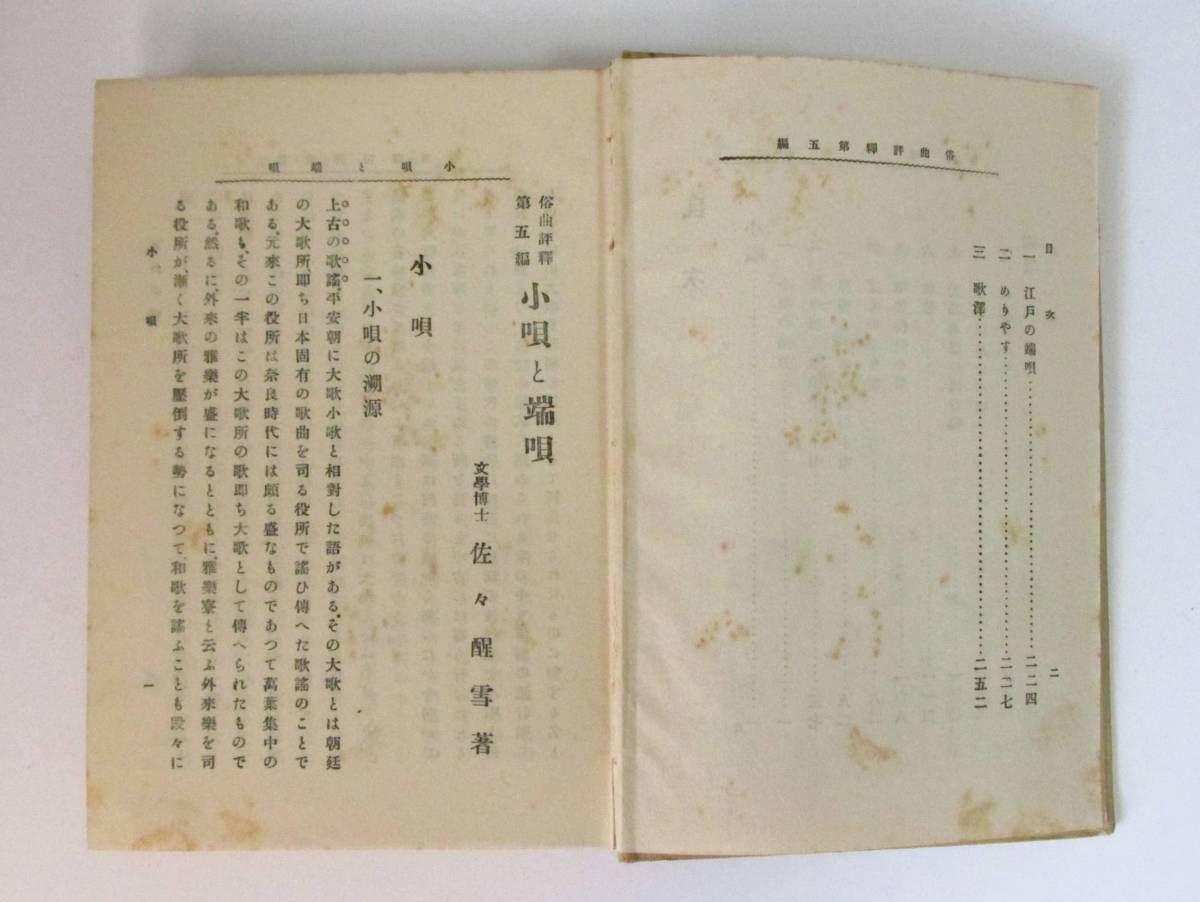 俗曲評釋第五編
目次
一 江戸の端唄……二二四
二 めりやす……二二七
三 歌澤……二五二
二
小唄と端唄
俗曲評釋
第五編
小唄と端唄
文學博士 佐々醒雪著
小唄
一、小唄の溯源
上古の歌謠。平安朝に大歌小歌と相對した語がある。その大歌とは朝廷
の大歌所、即ち日本固有の歌曲を司る役所で謠ひ傳へた歌謠のことで
ある。元來この役所は奈良時代には頗る盛なものであつて萬葉集中の
和歌も、その一半はこの大歌所の歌即ち大歌として傳へられたもので
ある。然るに、外來の雅樂が盛になるとともに、雅樂寮と云ふ外來樂を司
る役所が、漸く大歌所を壓倒する勢になつて、和歌を謠ふことも段々に
小唄
一